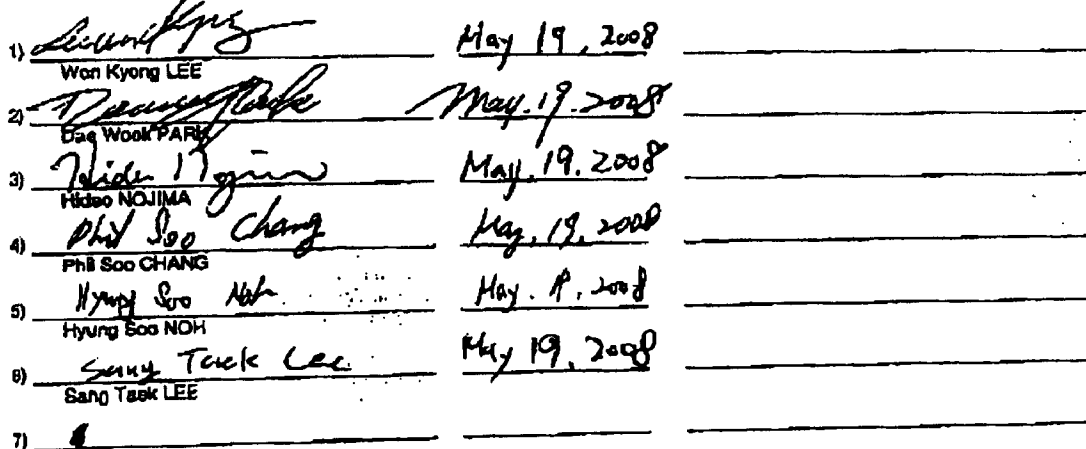 1) May 19, 2008
Won Kyong LEE
2) May. 19. 2008
Dae Wook PARK
3) Hideo Nojima May. 19. 2008
Hideo NOJIMA
4) Phil Soo Chang May, 19, 2008
Phil Soo CHANG
5) Hyung Soo Noh May. 19, 2008
Hyung Soo NOH
6) Sang Taek Lee May 19, 2008
Sang Taek LEE
7)